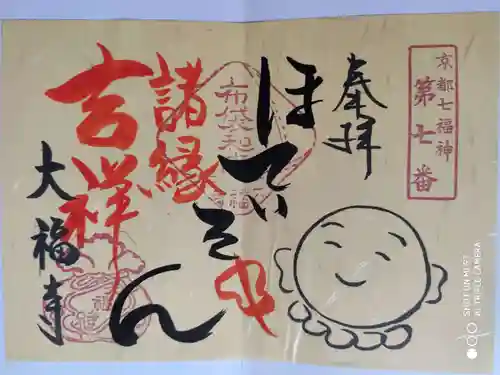 京都七福神
第七番
奉拝
ほていそん
布袋和尚
諸縁
吉祥
大福寺
SHOT ON MI 9T
AI TRIPLE CAMERA